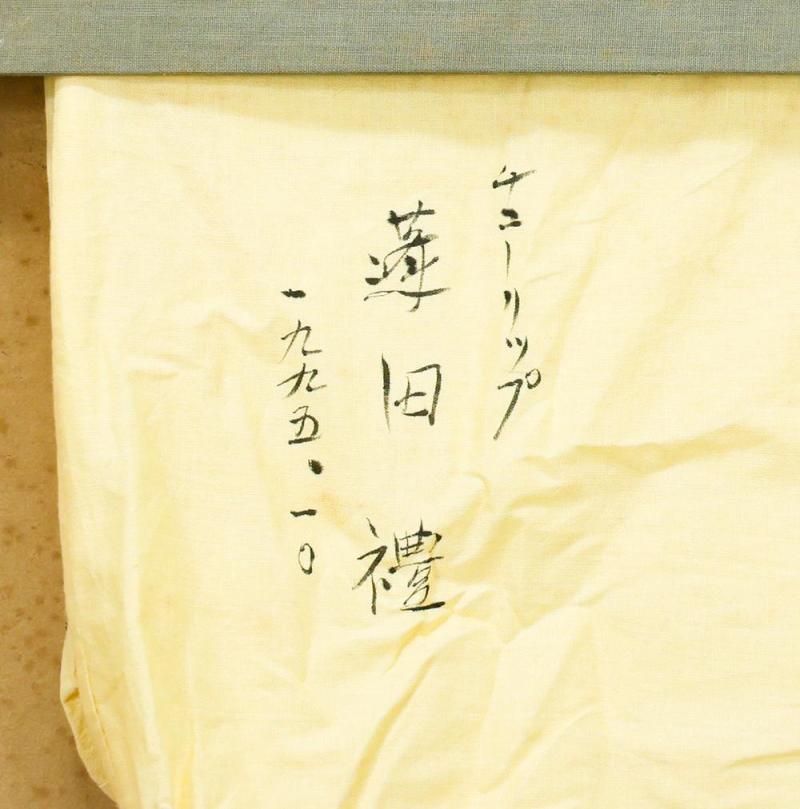 チューリップ
蓬田禮
一九九五.一〇